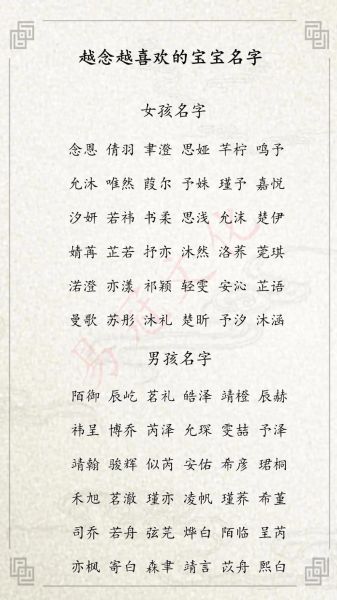 越念越喜欢的宝宝名字
女孩名字
念恩 倩羽 聿澄 思娅 芊柠 鸣予
允沐 唯然 葭尔 予姝 瑾予 嘉悦
汐妍 若祎 书柔 思浅 允沫 楚伊
婧苒 芷若 抒亦 沐然 洛荞 莞琪
渃澄 亦漾 祁颖 轻雯 安沁 芷语
曼歌 苏彤 沐礼 楚昕 予汐 沐涵
男孩名字
陌御 辰屹 茗礼 皓泽 靖橙 辰赫
祎呈 博乔 芮泽 允琛 雯喆 予泽
靖翰 骏辉 似芮 安佑 希彦 珺桐
禾旭 茗澈 瑾亦 凌帆 瑾荞 希堇
司乔 若舟 弦芫 烨白 陌临 呈芮
亦枫 寄白 森聿 靖言 苡舟 熙白